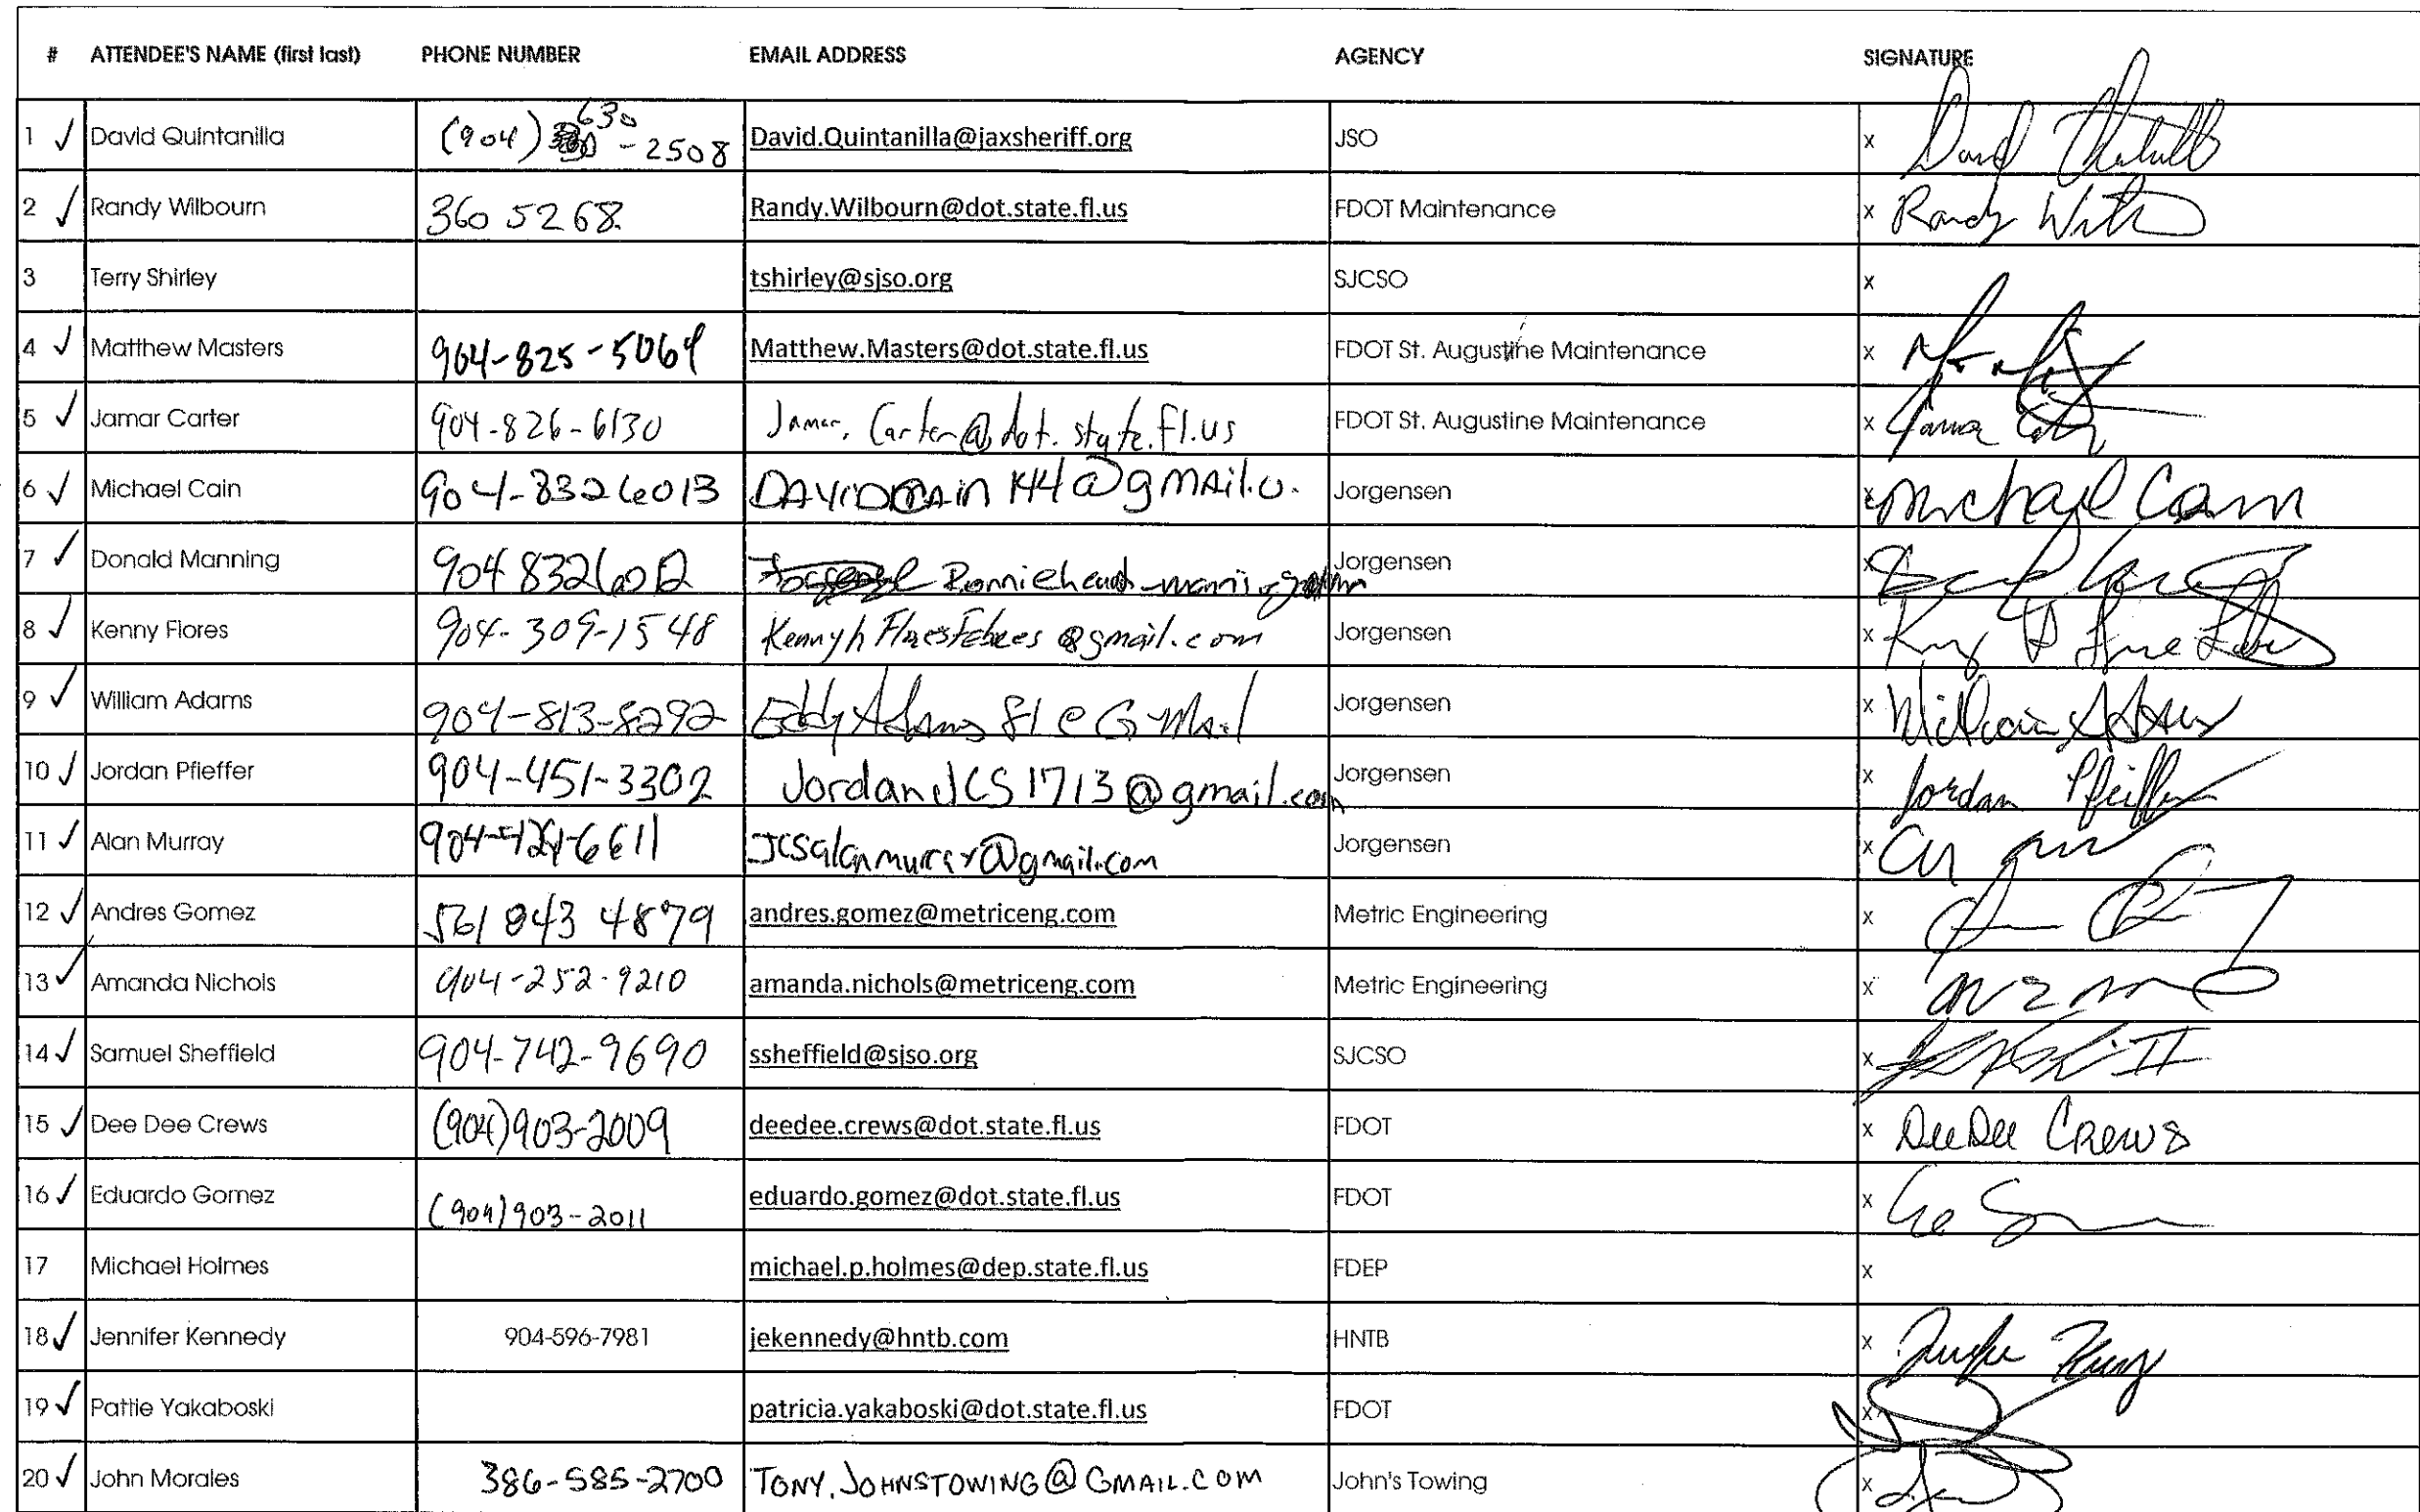 # ATTENDEE'S NAME (first last) PHONE NUMBER EMAIL ADDRESS AGENCY SIGNATURE
1 ✓ David Quintanilla (904) 630-2508 David.Quintanilla@jaxsheriff.org JSO x David
2 ✓ Randy Wilbourn 360 5268 Randy.Wilbourn@dot.state.fl.us FDOT Maintenance x Randy
3 Terry Shirley tshirley@sjso.org SJCSO x
4 ✓ Matthew Masters 904-825-5069 Matthew.Masters@dot.state.fl.us FDOT St. Augustine Maintenance x
5 ✓ Jamar Carter 904-826-6130 Jamar.Carter@dot.state.fl.us FDOT St. Augustine Maintenance x
6 ✓ Michael Cain 904-8326013 Jorgensen x Michael Cain
7 ✓ Donald Manning Jorgensen x
8 ✓ Kenny Flores 904-309-1548 Jorgensen x
9 ✓ William Adams 904-813-8292 EddyAdams81@GMail Jorgensen x William Adams
10 ✓ Jordan Pfieffer 904-451-3302 JordanJCS1713@gmail.com Jorgensen x Jordan Pfeiffer
11 ✓ Alan Murray JCSalanmurray@gmail.com Jorgensen x
12 ✓ Andres Gomez 561 843 4879 andres.gomez@metriceng.com Metric Engineering x
13 ✓ Amanda Nichols 904-252-9210 amanda.nichols@metriceng.com Metric Engineering x
14 ✓ Samuel Sheffield 904-742-9690 ssheffield@sjso.org SJCSO x
15 ✓ Dee Dee Crews (904)903-2009 deedee.crews@dot.state.fl.us FDOT x DeeDee Crews
16 ✓ Eduardo Gomez (904)903-2011 eduardo.gomez@dot.state.fl.us FDOT x
17 Michael Holmes michael.p.holmes@dep.state.fl.us FDEP x
18 ✓ Jennifer Kennedy 904-596-7981 jekennedy@hntb.com HNTB x
19 ✓ Pattie Yakaboski patricia.yakaboski@dot.state.fl.us FDOT x
20 ✓ John Morales 386-585-2700 TONY.JOHNSTOWING@GMAIL.COM John's Towing x